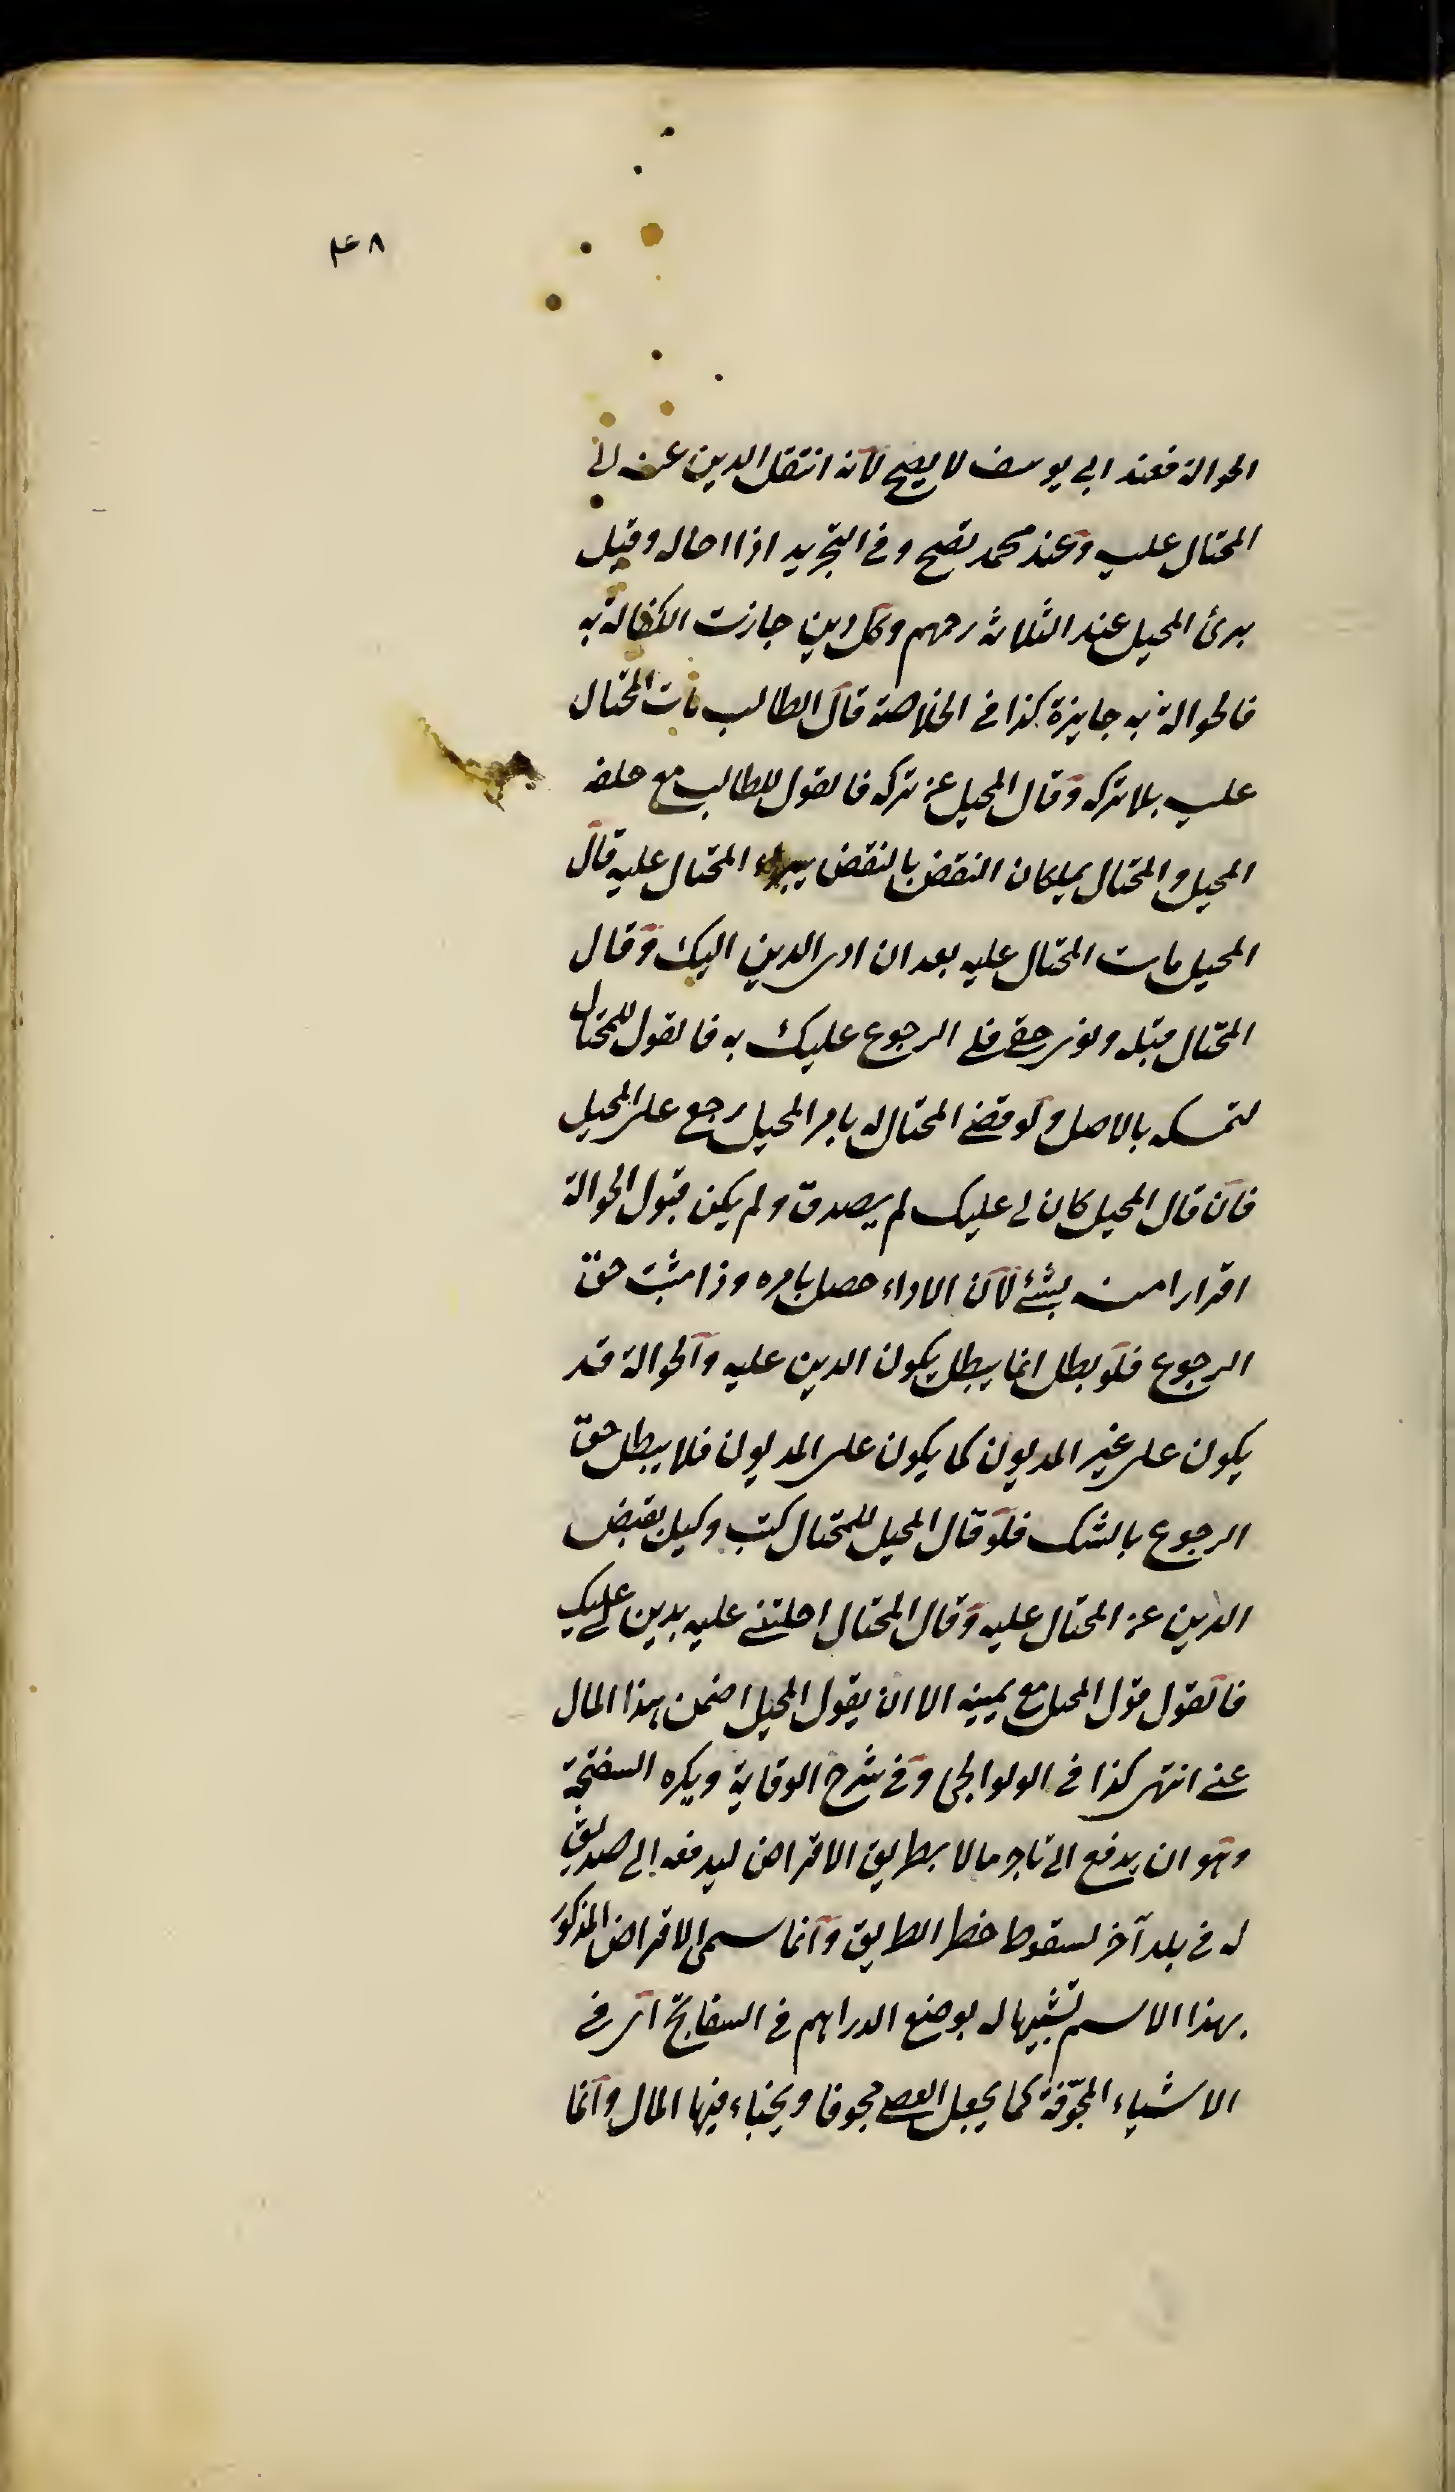 ۴۸
الحوالة فعند ابى يوسف لا يصح لانه انتقل الدين عنه الى
المحتال عليه وعند محمد تصح وفى التجريد اذا احاله وقبل
برئ المحيل عند الثلاثة رحمهم وكل دين جازت الكفالة به
فالحوالة به جايزة كذا فى الخلاصة قال الطالب مات المحتال
عليه بلا تركة وقال المحيل عن تركة فالقول للطالب مع حلفه
المحيل والمحتال يملكان النقض بالنقض يبرأ المحتال عليه قال
المحيل مات المحتال عليه بعد ان ادى الدين اليك وقال
المحتال قبله وتوى حقى فلى الرجوع عليك به فالقول للمحتال
لتمسكه بالاصل ولو قضى المحتال له بامر المحيل رجع على المحيل
فان قال المحيل كان لى عليك لم يصدق ولم يكن قبول الحوالة
اقرارا منه بشئ لان الاداء حصل بامره وذا مثبت حق
الرجوع فلو بطل انما يبطل بكون الدين عليه والحوالة قد
يكون على غير المديون كما يكون على المديون فلا يبطل حق
الرجوع بالشك فلو قال المحيل للمحتال كنت وكيلى بقبض
الدين عن المحتال عليه وقال المحتال احلتنى عليه بدين لى عليك
فالقول قول المحيل مع يمينه الا ان يقول المحيل اضمن هذا المال
عنى انتهى كذا فى الولوالجى وفى شرح الوقاية ويكره السفتجة
وهو ان يدفع الى تاجر مالا بطريق الاقراض ليدفعه الى صديق
له فى بلد آخر لسقوط خطر الطريق وانما سمى الاقراض المذكور
بهذا الاسم تشبيها له بوضع الدراهم فى السفاتج اى فى
الاشياء المجوّفة كما يجعل العصى مجوفا ويخباء فيها المال وانما